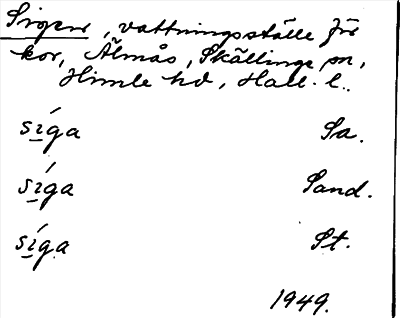 Sigen, vattningsställe för
kor, Älmås, Skällinge sn,
Himle hd, Hall. l.
síga Sa.
síga Sand.
síga St.
1949.